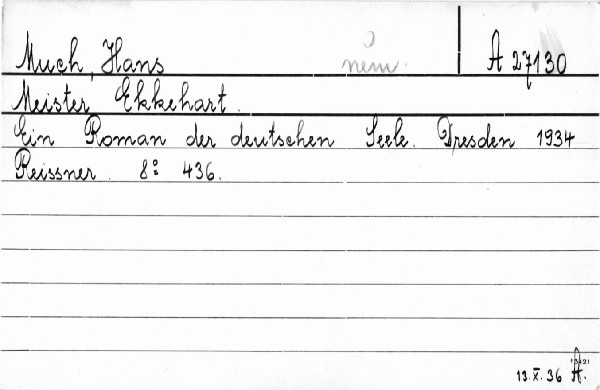 Much, Hans nem. A 27130
Meister Ekkehart.
Ein Roman der deutschen Seele. Dresden 1934
Reissner. 8° 436.
13.X.36 A.